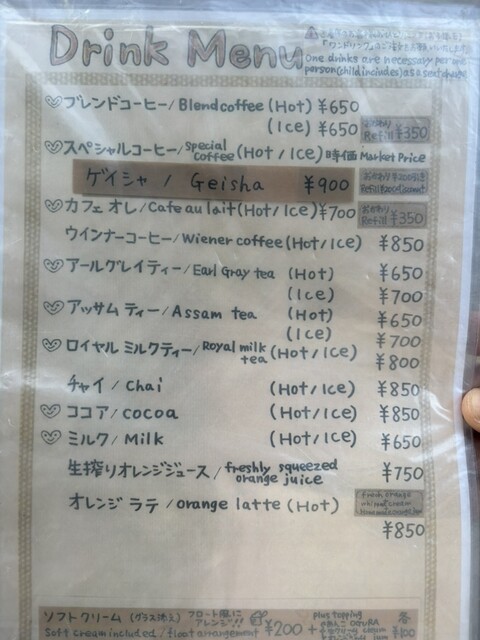 Drink Menu
「ワンドリンク」のご注文をお願いいたします。
One drinks are necessary per one
person(child includes) as a seat charge
ブレンドコーヒー/Blend coffee (Hot) ¥650
(Ice) ¥650 おかわり Refill ¥350
スペシャルコーヒー/special coffee (Hot/Ice) 時価 Market Price
ゲイシャ / Geisha ¥900 おかわり ¥200引き Refill ¥200 discount
カフェ オレ/Cafe au lait (Hot/Ice) ¥700 おかわり Refill ¥350
ウインナーコーヒー/Wiener coffee (Hot/Ice) ¥850
アールグレイティー/Earl Gray tea (Hot) ¥650
(Ice) ¥700
アッサム ティー/Assam tea (Hot) ¥650
(Ice) ¥700
ロイヤル ミルクティー/Royal milk tea (Hot/Ice) ¥800
チャイ/Chai (Hot/Ice) ¥850
ココア/cocoa (Hot/Ice) ¥850
ミルク/Milk (Hot/Ice) ¥650
生搾りオレンジジュース/freshly squeezed orange juice ¥750
オレンジ ラテ/orange latte (Hot) fresh orange whipped cream
¥850
ソフトクリーム (グラス添え) フロート風にアレンジ!! ¥200
Soft cream included/float arrangement
Plus topping 各 ¥100